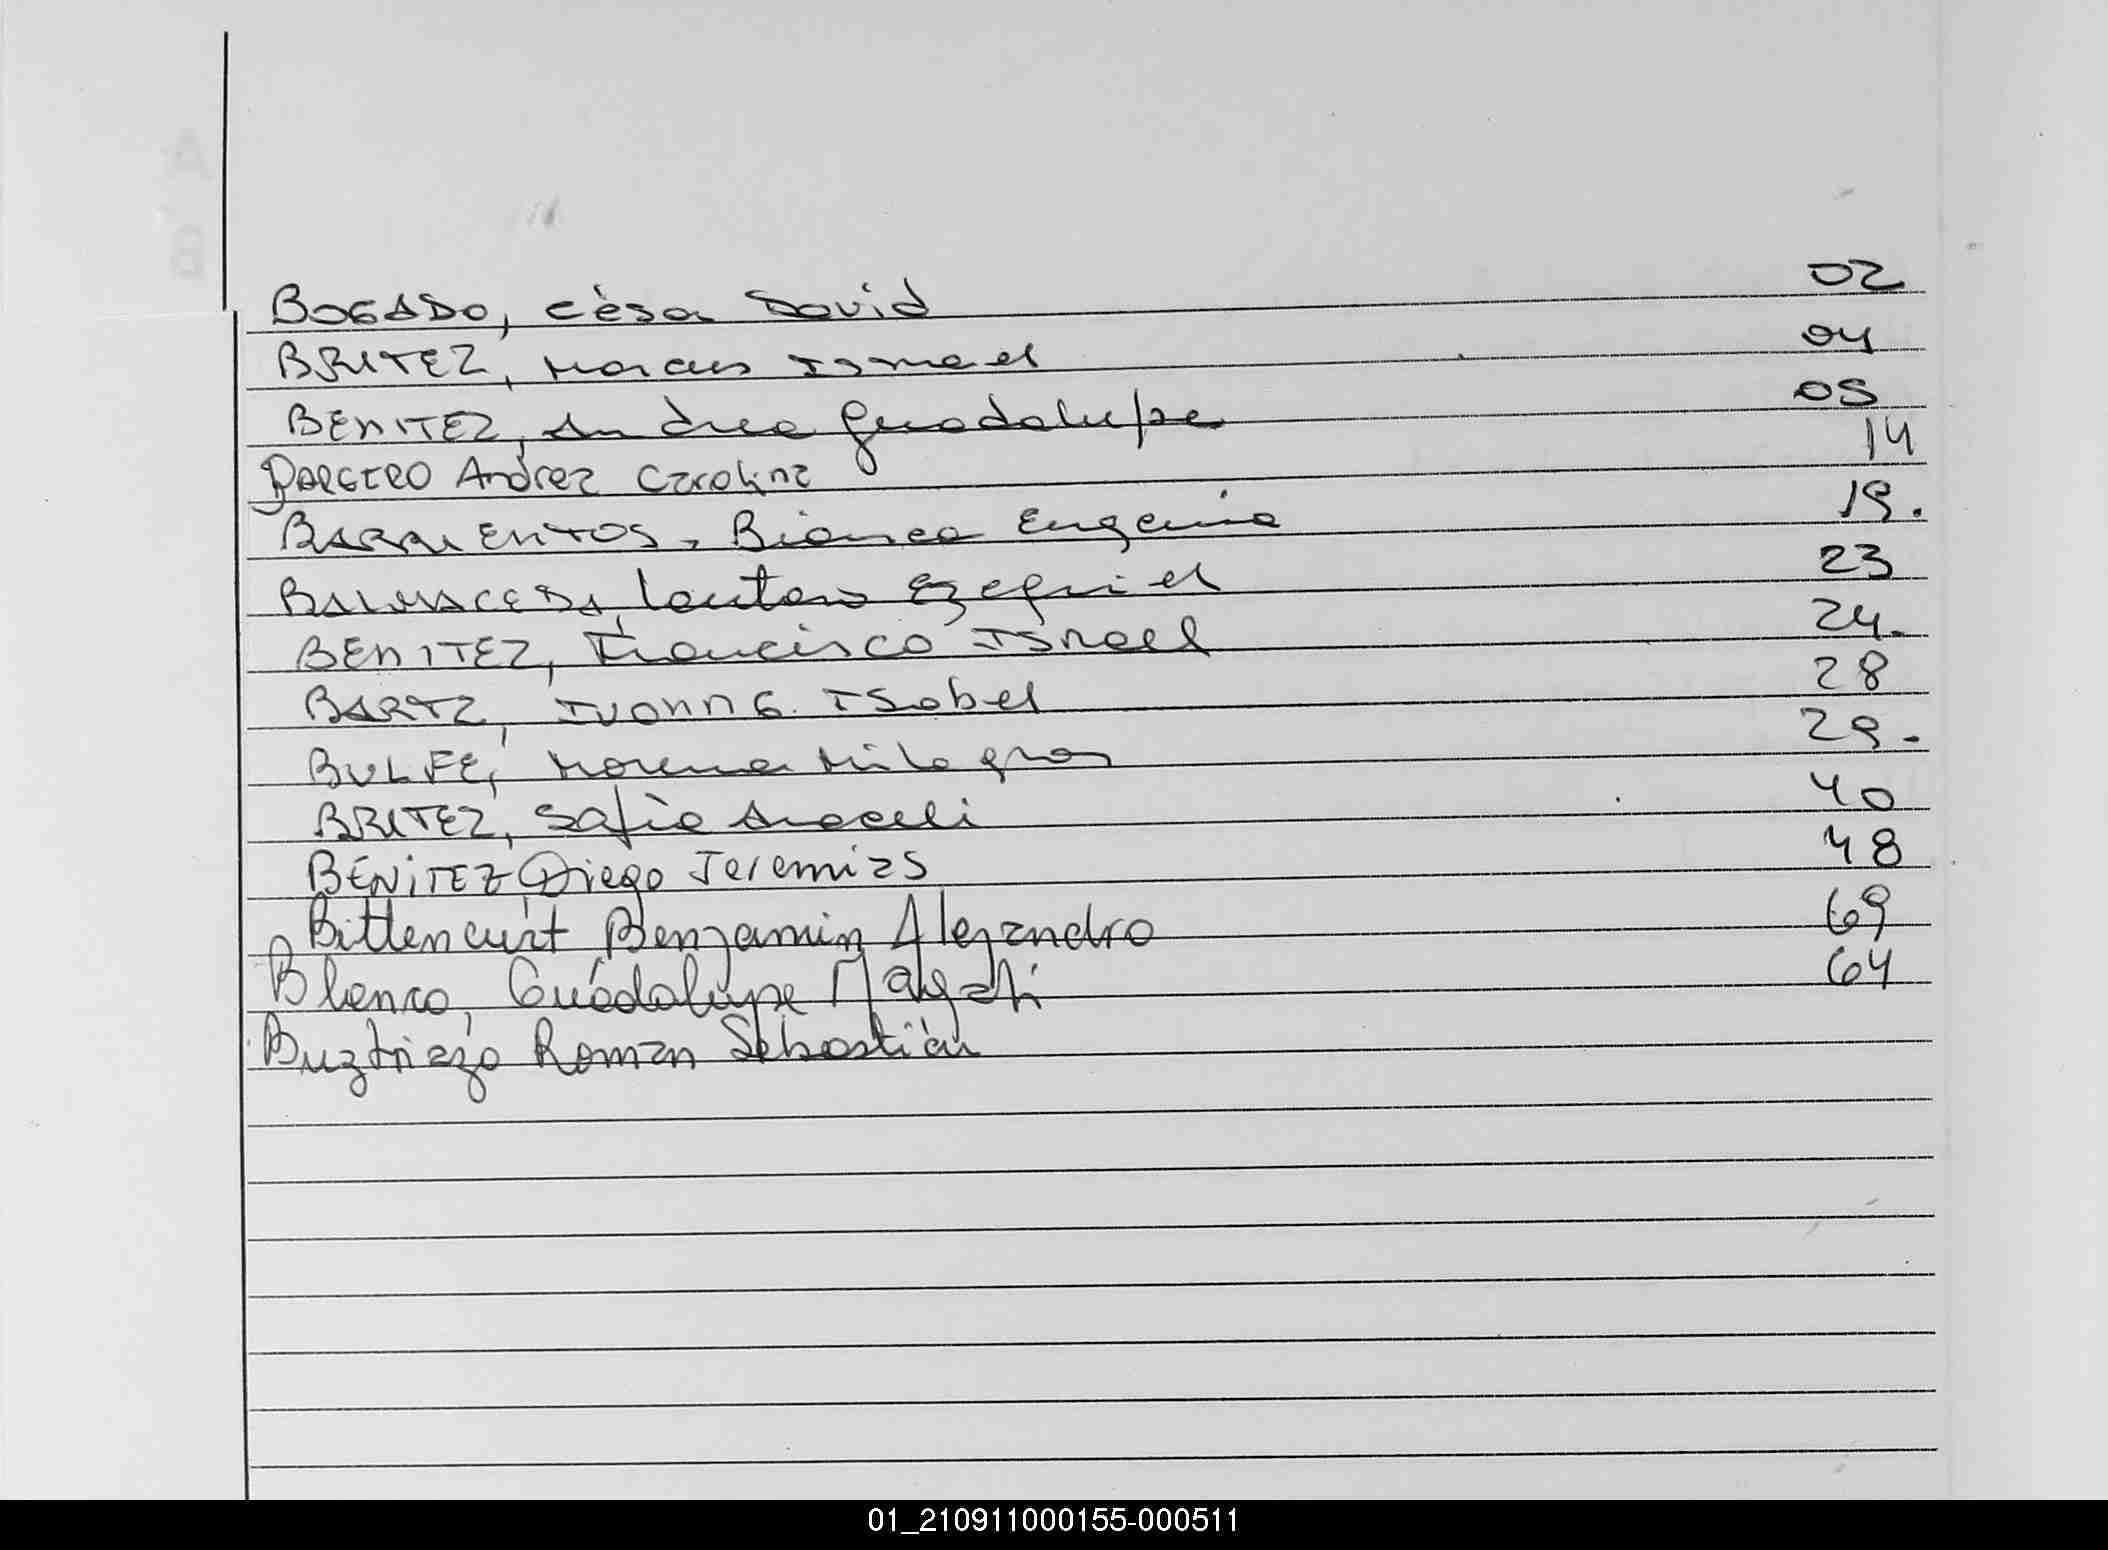 BOGADO, César David 02
BRITEZ, Marcus Ismael 04
BENITEZ, Andrea Guadalupe 05
Andrea Carolina 14
BARRIENTOS, Bianca Eugenia 19.
BALMACEDA, Lautaro Ezequiel 23
BENITEZ, Francisco Isrrael 24.
BARTZ, IVONNE. ISabel 28
BULFE, Morena Milagros 29.
BRITEZ, Sofia Araceli 40
BENITEZ Diego Jeremias 48
Bittencurt Benjamin Alejandro 69
Blanco, Guadalupe Magali 64
Roman Sebastián
01_210911000155-000511